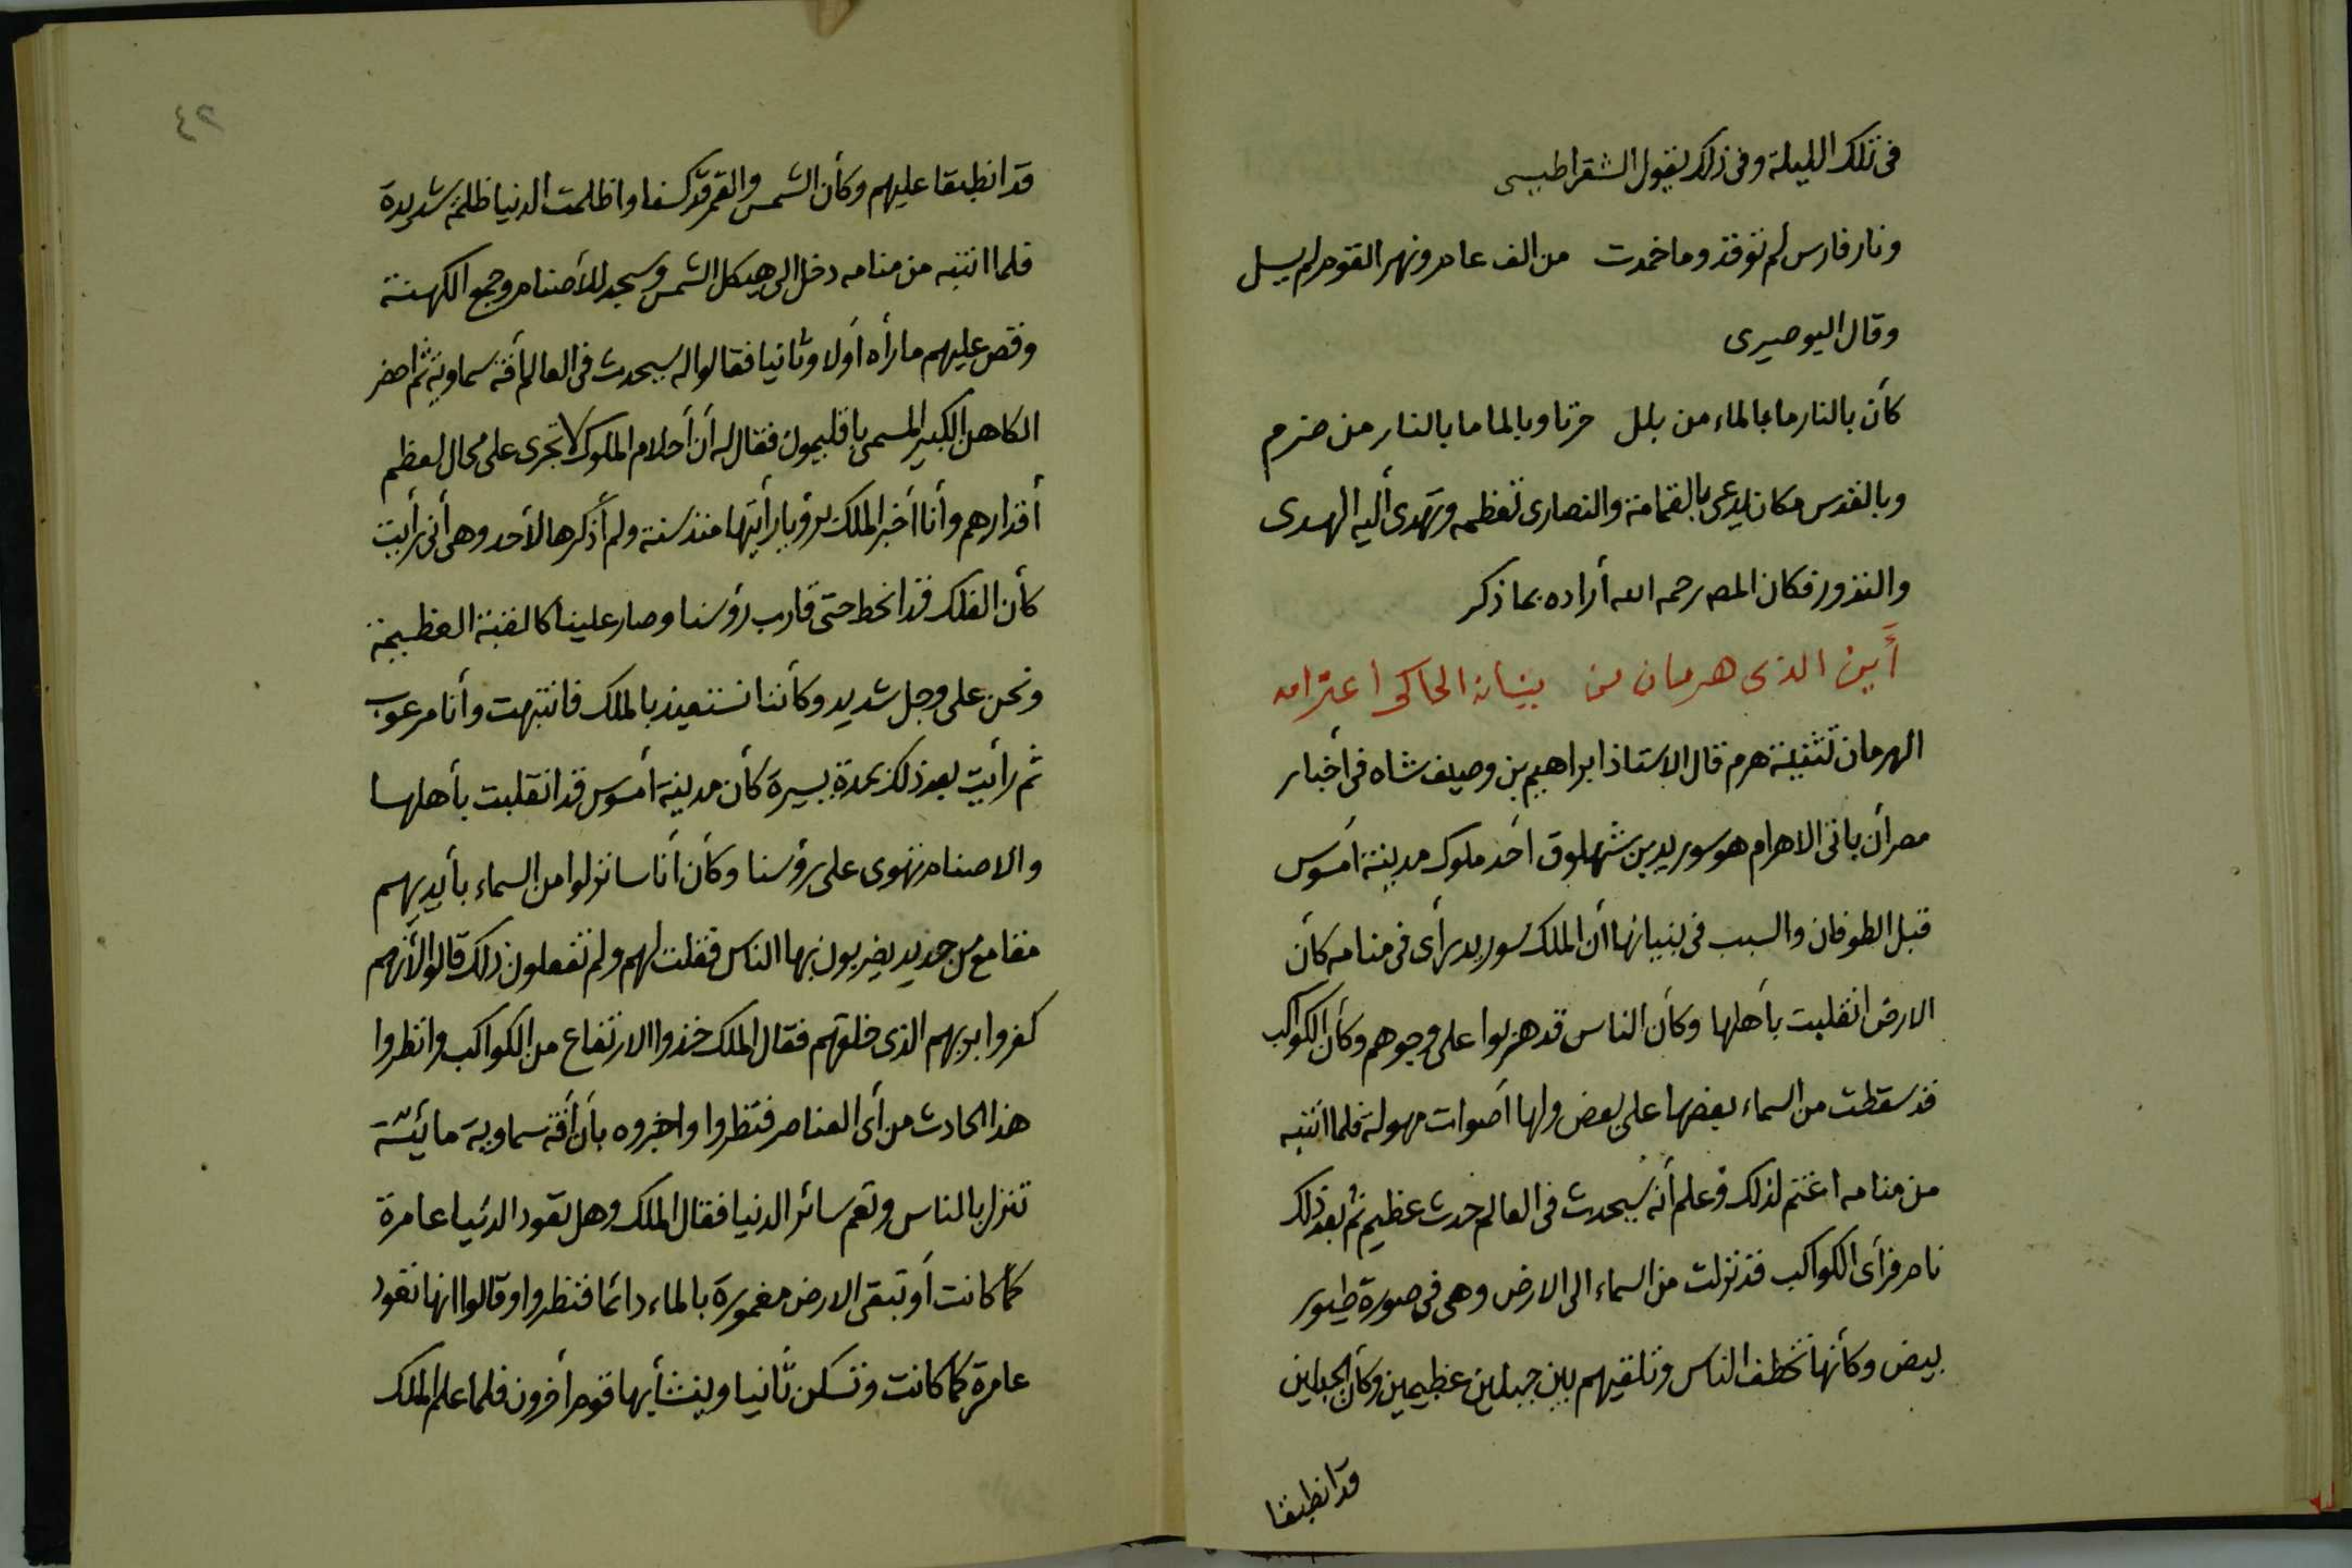 فى تلك الليلة وفى ذلك يقول الشقراطيسى
ونار فارس لم توقد وما خمدت من الف عام ونهر القوم لم يسل
وقال اليوصيرى
كأن بالنار ما بالماء من بلل حزنا وبالما ما بالنار من ضرم
وبالقدس مكان يدعى بالقمامة والنصارى تعظمه وتهدى أليه الهدى
والنذور فكان المصه رحمه الله أراده بما ذكر
أين الذى هرمان من بنيانه الحاكى اعتزامه
الهرمان تثنية هرم قال الاستاذ ابراهيم بن وصيف شاه فى أخبار
مصر أن بانى الاهرام هو سوريد بن شهلوق أحد ملوك مدينة أمسوس
قبل الطوفان والسبب فى بنيانها أن الملك سوريد رأى فى منامه كأن
الارض انقلبت بأهلها وكأن الناس قد هربوا على وجوههم وكأن الكواكب
قد سقطت من السماء بعضها على بعض ولها أصوات مهولة فلما انتبه
من منامه اغتم لذلك وعلم أنه سيحدث فى العالم حدث عظيم ثم بعد ذلك
نام فرأى الكواكب قد نزلت من السماء الى الارض وهى فى صورة طيور
بيض وكأنها تخطف الناس وتلقيهم بين جبلين عظيمين وكأن الجبلين
قد انطبقا
٤٢
قد انطبقا عليهم وكأن الشمس والقمر قد كسفا واظلمت الدنيا ظلمة شديدة
فلما انتبه من منامه دخل الى هيكل الشمس وسجد للأصنام وجمع الكهنة
وقص عليهم ما رأه أولا وثانيا فقالوا له سيحدث فى العالم أفة سماوية ثم احضر
الكاهن الكبير المسمى باقليمون فقال له أن أحلام الملوك لا تجرى على محال لعظم
أقدارهم وأنا أخبر الملك برؤيا رأيتها منذ سنة ولم أذكرها لأحد وهى أنى رأيت
كأن الفلك قد انحط حتى قارب رؤسنا وصار علينا كالقبة العظيمة
ونحن على وجل شديد وكأننا نستعيذ بالملك فانتبهت وأنا مرعوب
ثم رأيت بعد ذلك بمدة يسيرة كأن مدينة أمسوس قد انقلبت بأهلها
والاصنام تهوى على رؤسنا وكأن أناسا نزلوا من السماء بأيديهم
مقامع من حديد يضربون بها الناس فقلت لهم ولم تفعلون ذلك قالوا لأنهم
كفروا بربهم الذى خلقهم فقال الملك خذوا الارتفاع من الكواكب وانظروا
هذا الحادث من أى العناصر فنظروا واخبروه بأن أفة سماوية مائية
تنزل بالناس وتعم سائر الدنيا فقال الملك وهل تعود الدنيا عامرة
كما كانت أو تبقى الارض مغمورة بالماء دائما فنظروا وقالوا انها تعود
عامرة كما كانت وتسكن ثانيا وينشأ بها قوم أخرون فلما علم الملك